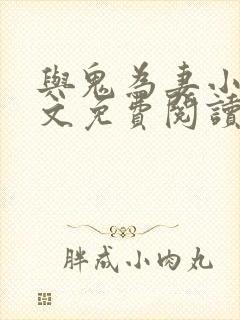 與鬼為妻小
文免費閱讀
胖成小肉丸